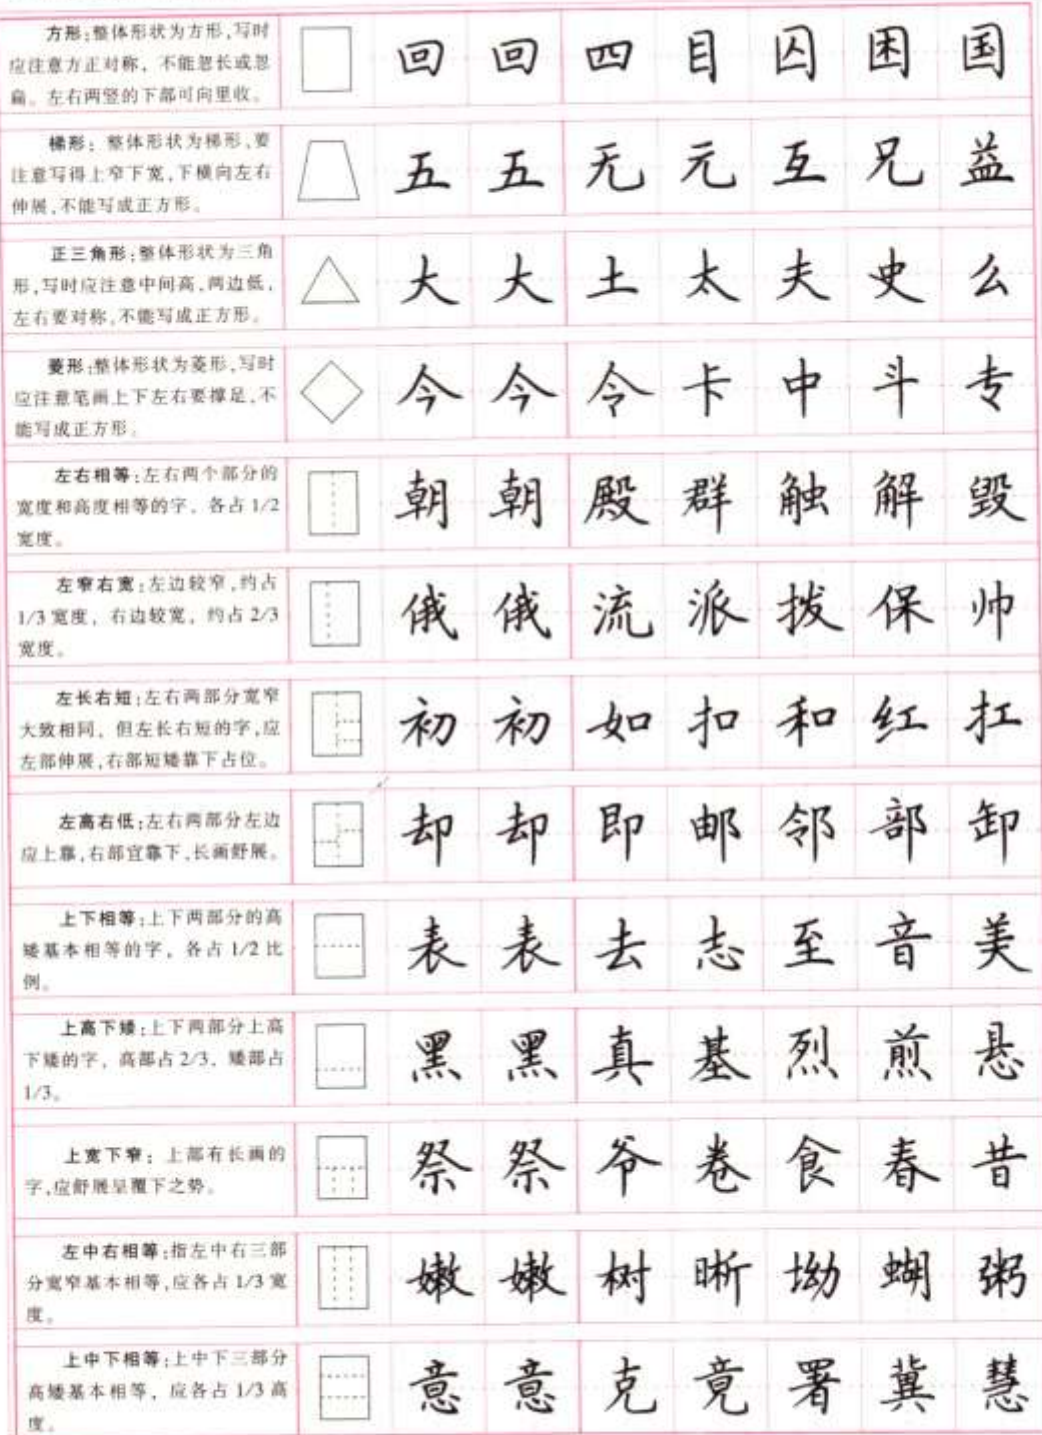 方形:整体形状为方形,写时
应注意方正对称，不能忽长或忽
扁。左右两竖的下部可向里收。
回 回 四 目 囚 困 国
梯形：整体形状为梯形,要
注意写得上窄下宽,下横向左右
伸展,不能写成正方形。
五 五 无 元 互 兄 益
正三角形:整体形状为三角
形,写时应注意中间高,两边低,
左右要对称,不能写成正方形。
大 大 土 太 夫 史 么
菱形:整体形状为菱形,写时
应注意笔画上下左右要撑足,不
能写成正方形。
今 今 令 卡 中 斗 专
左右相等:左右两个部分的
宽度和高度相等的字，各占 1/2
宽度。
朝 朝 殿 群 触 解 毁
左窄右宽:左边较窄,约占
1/3 宽度，右边较宽，约占 2/3
宽度。
俄 俄 流 派 拨 保 帅
左长右短:左右两部分宽窄
大致相同，但左长右短的字,应
左部伸展,右部短矮靠下占位。
初 初 如 扣 和 红 扛
左高右低:左右两部分左边
应上靠,右部宜靠下,长画舒展。
却 却 即 邮 邻 部 卸
上下相等:上下两部分的高
矮基本相等的字，各占 1/2 比
例。
表 表 去 志 至 音 美
上高下矮:上下两部分上高
下矮的字，高部占 2/3，矮部占
1/3。
黑 黑 真 基 烈 煎 悬
上宽下窄：上部有长画的
字,应舒展呈覆下之势。
祭 祭 爷 卷 食 春 昔
左中右相等:指左中右三部
分宽窄基本相等,应各占 1/3 宽
度。
嫩 嫩 树 晰 坳 蝴 粥
上中下相等:上中下三部分
高矮基本相等，应各占 1/3 高
度。
意 意 克 竟 署 冀 慧